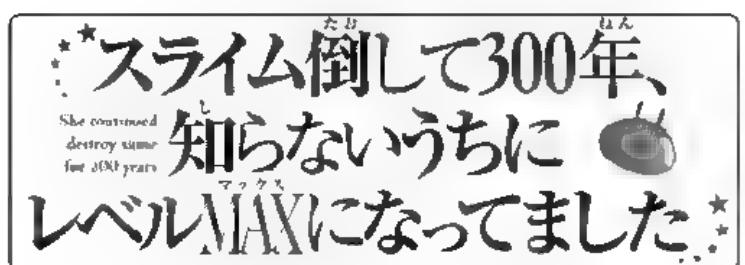 たお ねん
スライム倒して300年、
She continued
destroy slime
for 300 years
し
知らないうちに
マックス
レベルMAXになってました